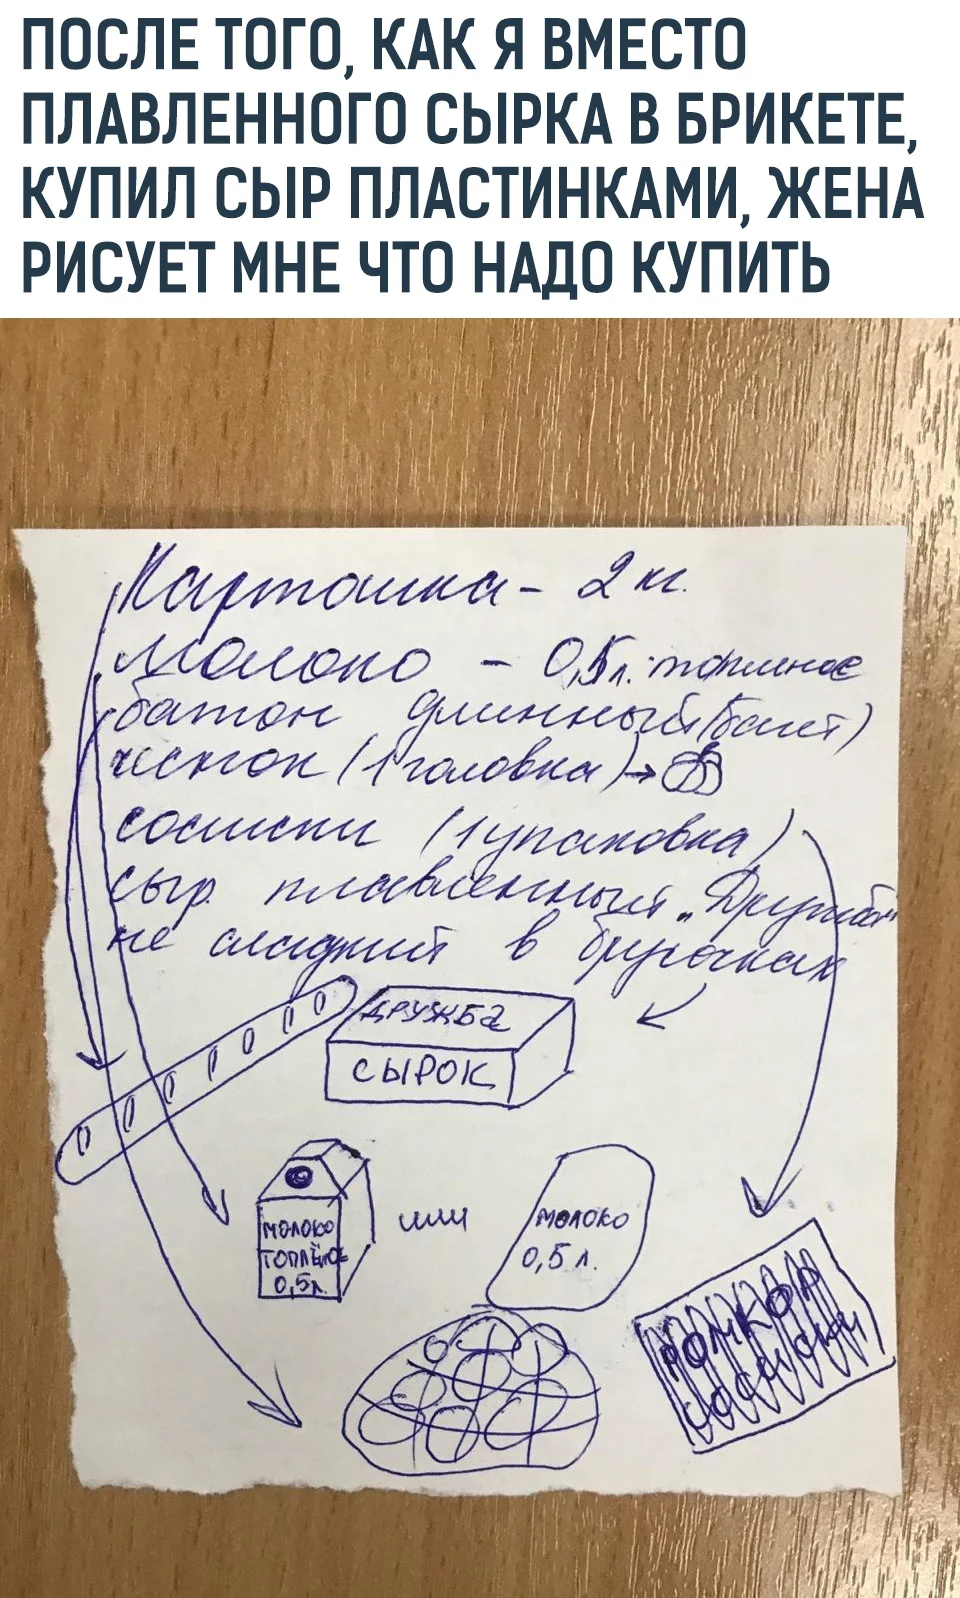 ПОСЛЕ ТОГО, КАК Я ВМЕСТО
ПЛАВЛЕННОГО СЫРКА В БРИКЕТЕ,
КУПИЛ СЫР ПЛАСТИНКАМИ, ЖЕНА
РИСУЕТ МНЕ ЧТО НАДО КУПИТЬ
Картошка - 2 кг.
Молоко - 0,5л. топленое
батон длинный (багет)
чеснок (1 головка) →
сосиски (1 упаковка)
сыр плавленный „Дружба"
не сладкий в брусочках
ДРУЖБА
СЫРОК
МОЛОКО
ТОПЛЁНОЕ
0,5л.
или
МОЛОКО
0,5 л.